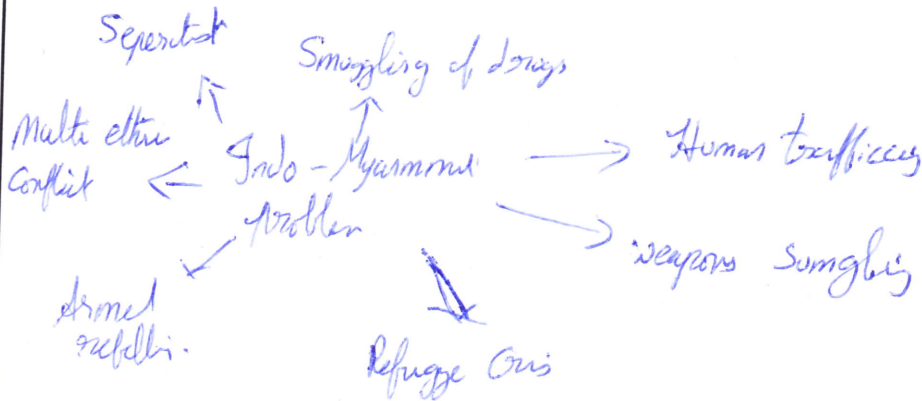 Seperatist
Smuggling of drugs
Multi ethnic
Conflict
Indo-Myanmar
problem
Human trafficcing
weapons Sumgling
Armed
rebellin.
Refugge Cris